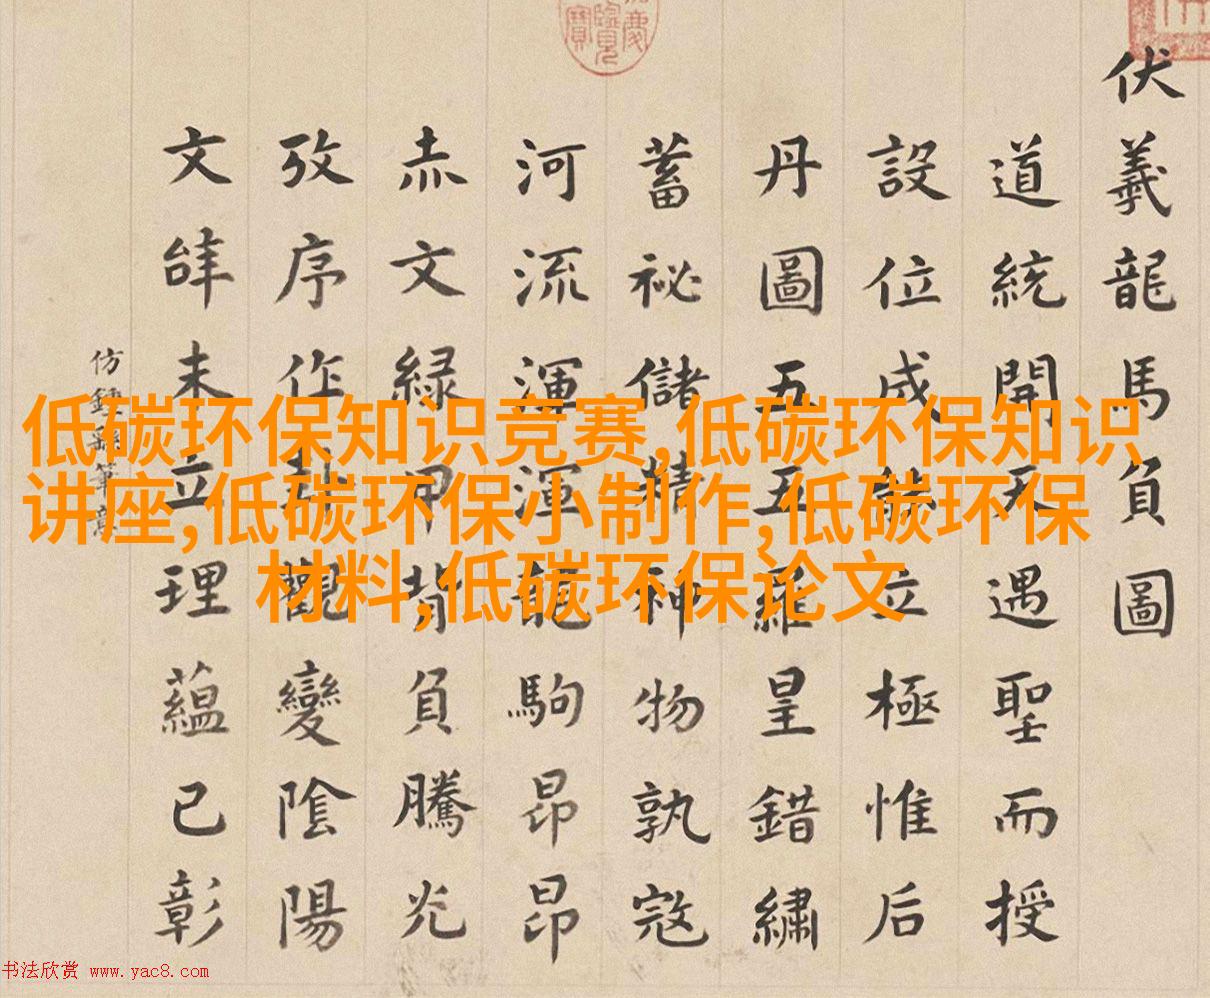 伏羲龍馬負圖
道統開天遇聖而授
設位成能立極惟后
丹圖五五羅皇錯繡
蓄祕儲精神物孰寇
河流渾渾龍駒昂昂
赤文緑甲背負騰光
攷序作卦觀變陰陽
文辞未立理蘊已彰
低碳环保知识竞赛,低碳环保知识
讲座,低碳环保小制作,低碳环保
材料,低碳环保论文
书法欣赏 www.yac8.com